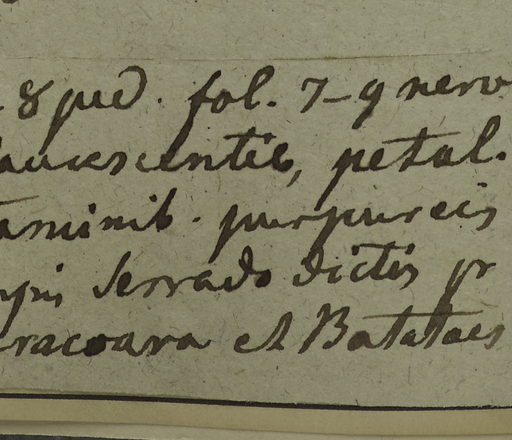 8 ped. fol. 7-9 nerv
aucescentib, petal.
taminib. purpureis
mpis Serrado dictis pr
racoara et Batataes